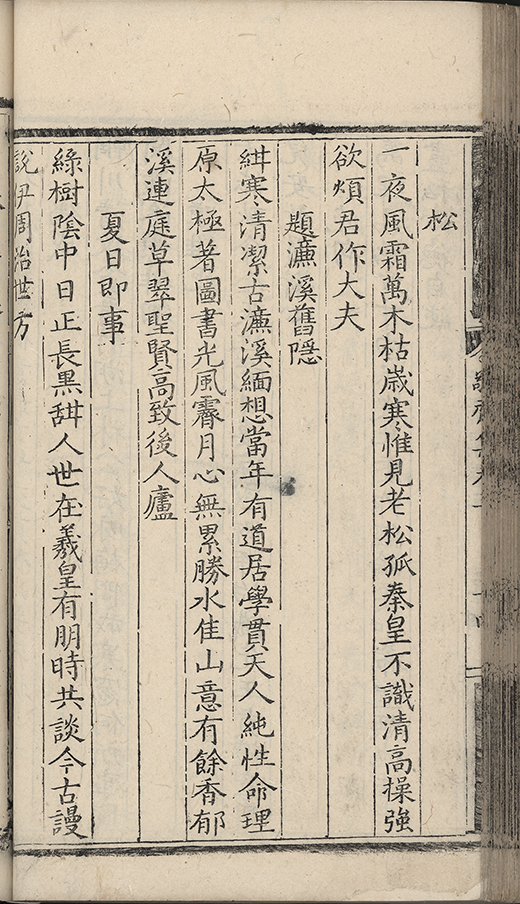 松
一夜風霜萬木枯歳寒惟見老松孤秦皇不識清高操強
欲煩君作大夫
題濂溪舊隠
紺寒清潔古濂溪緬想當年有道居學貫天人純性命理
原太極著圖書光風霽月心無累勝水佳山意有餘香郁
溪連庭草翠聖賢高致後人廬
夏日即事
綠樹陰中日正長黒甜人世在羲皇有朋時共談今古謾
說伊周治世方